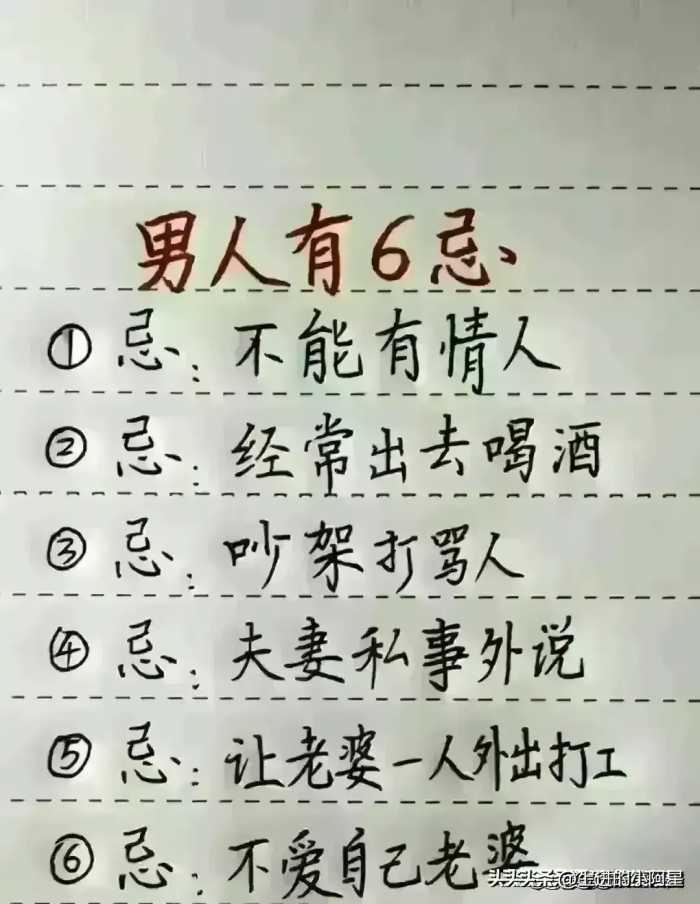 男人有6忌、
①忌：不能有情人
②忌：经常出去喝酒
③忌：吵架打骂人
④忌：夫妻私事外说
⑤忌：让老婆一人外出打工
⑥忌：不爱自己老婆
头头头条